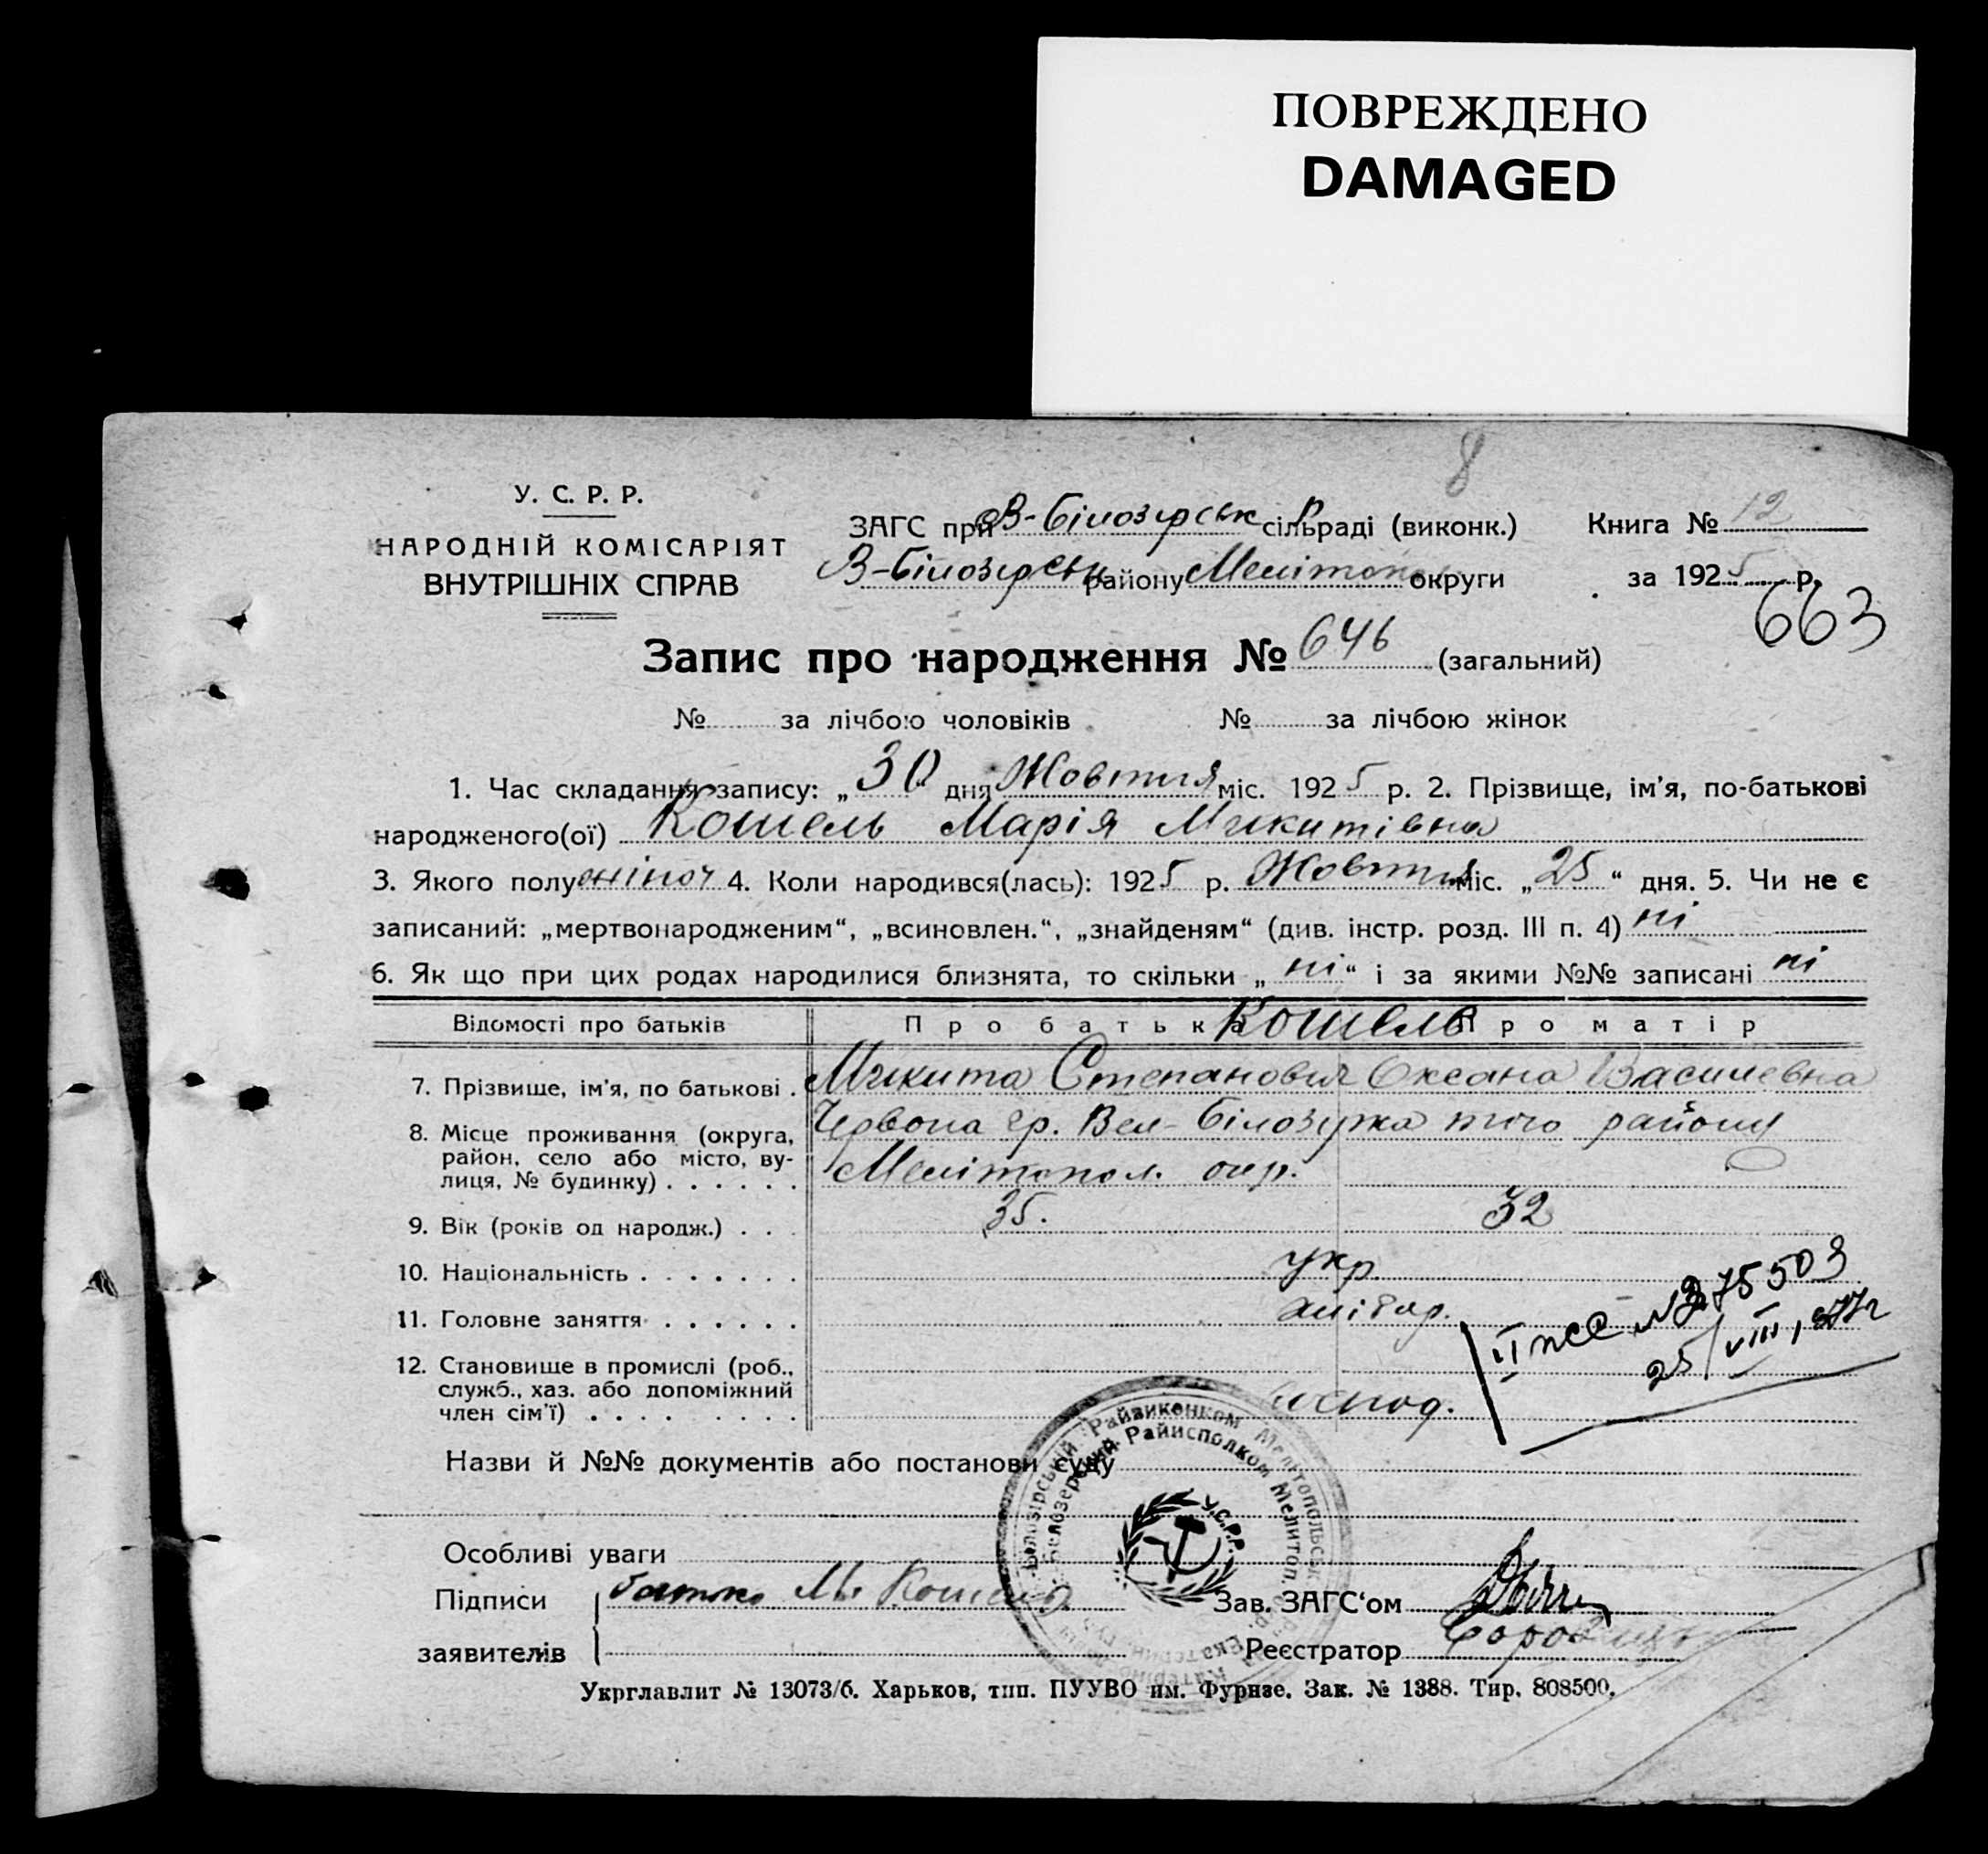 ПОВРЕЖДЕНО
DAMAGED
8
У. С. Р. Р.
НАРОДНІЙ КОМІСАРІЯТ
ВНУТРІШНІХ СПРАВ
ЗАГС при В-Білозірськ сільраді (виконк.)
Книга № 12
В-Білозірськ району Мелітопол округи
за 1925 р.
663
Запис про народження № 646 (загальний)
№ за лічбою чоловіків № за лічбою жінок
1. Час складання запису: „30“ дня Жовтня міс. 1925 р. 2. Прізвище, ім'я, по-батькові
народженого(ої) Кошель Марія Микитівна
3. Якого полу жіноч 4. Коли народився(лась): 1925 р. Жовтня міс. „25“ дня. 5. Чи не є
записаний: „мертвонародженим“, „всиновлен.“, „знайденям“ (див. інстр. розд. III п. 4) ні
6. Як що при цих родах народилися близнята, то скільки „ні“ і за якими №№ записані ні
Відомості про батьків Про батька Кошель Про матір
7. Прізвище, ім'я, по батькові . Микита Степанович Оксана Василевна
8. Місце проживання (округа, район, село або місто, вулиця, № будинку) . . . . . .
Червона гр. Вел-Білозірка того району
Мелітопол. окр.
9. Вік (років од народж.) . . . 35. 32
10. Національність . . . . . . . укр.
11. Головне заняття . . . . . . хлібор.
12. Становище в промислі (роб., служб., хаз. або допоміжний член сім'ї) . . . . . . . . господ.
№ 275503
25/VIII, 77г
Назви й №№ документів або постанови суду
Особливі уваги
Підписи заявителів
батько Мь Кошель
Зав. ЗАГС‘ом
Реєстратор
Білозірський Райвиконком Мелітопольськ
Белозерский Райисполком Мелитоп.
У.С.Р.Р.
Укрглавлит № 13073/б. Харьков, тип. ПУУВО им. Фрунзе. Зак. № 1388. Тир. 808500.